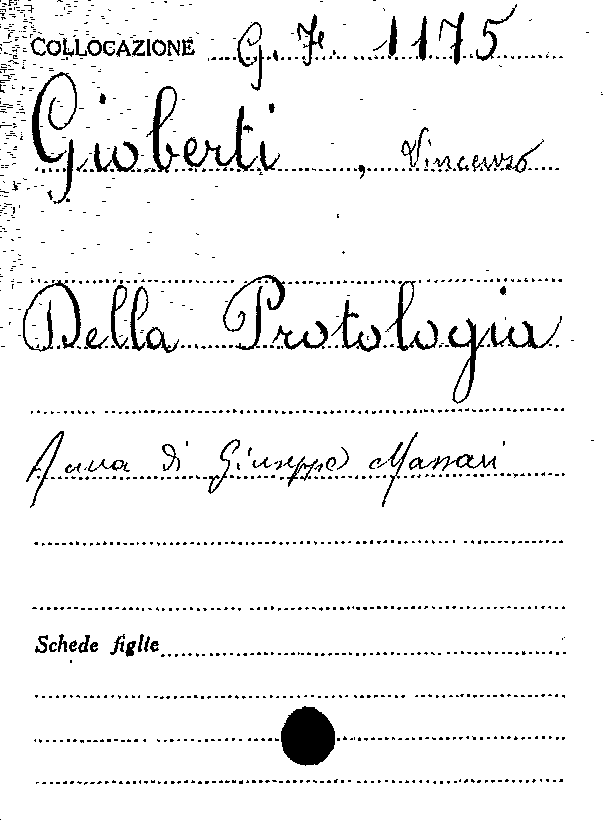 COLLOCAZIONE G. F. 1175
Gioberti, Vincenzo
Della Protologia
A cura di Giuseppe Massari
Schede figlie